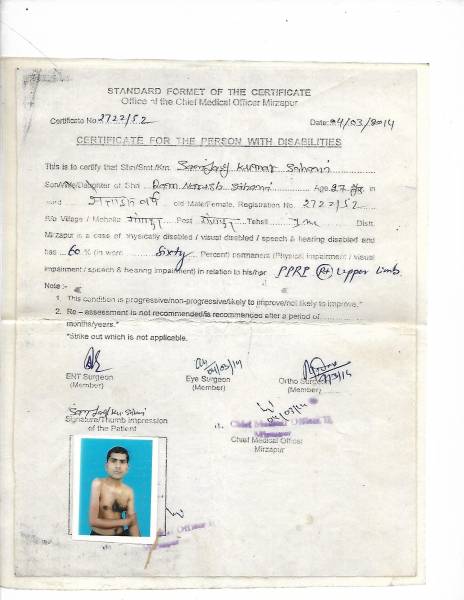 STANDARD FORMET OF THE CERTIFICATE
Office of the Chief Medical Officer Mirzapur
Certificate No. 2722/52 Date: 24/03/2014
CERTIFICATE FOR THE PERSON WITH DISABILITIES
This is to certify that Shri/Smt./Km. Sanjay Kumar Sahani
Son/Wife/Daughter of Shri Ram Naresh Sahani Age 27 yr in
word old Male/Female, Registration No. 2722/52
R/o Village / Mohalla Post Tehsil Distt.
Mirzapur is a case of physically disabled / visual disabled / speech & hearing disabled and
has 60 % (in word Sixty Percent) permanent (Physical impairment / visual
impairment / speech & hearing impairment) in relation to his/her PPRP (Rt) Upper Limb
Note :-
1. This condition is progressive/non-progressive/likely to improve/not likely to improve.*
2. Re – assessment is not recommended/is recommences after a period of
months/years.*
*Strike out which is not applicable.
04/03/14
ENT Surgeon Eye Surgeon Ortho Surgeon
(Member) (Member) (Member)
Signature/Thumb impression
of the Patient
Chief Medical Officer
Mirzapur
Chief Medical Officer
Mirzapur